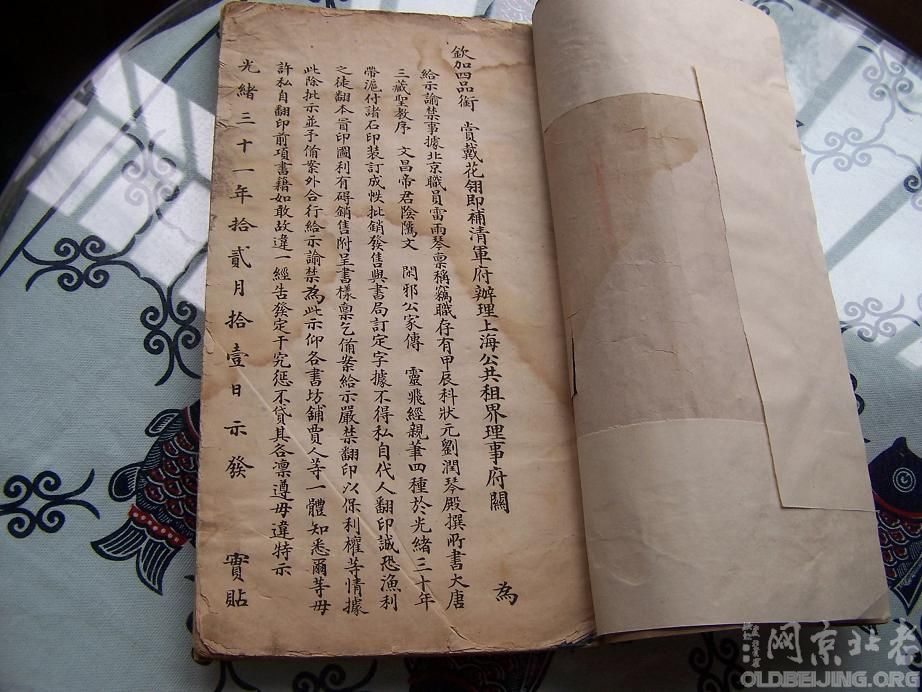 欽加四品銜　賞戴花翎即補清軍府辦理上海公共租界理事府關　為
給示諭禁事據北京職員雷雨琴稟稱竊職存有甲辰科狀元劉潤琴殿撰所書大唐
三藏聖教序　文昌帝君陰隲文　閑邪公家傳　靈飛經親筆四種於光緒三十年
帶滬付諸石印裝訂成帙批銷發售與書局訂定字據不得私自代人翻印誠恐漁利
之徒翻本冒印圖利有碍銷售附呈書樣稟乞備案給示嚴禁翻印以保利權等情據
此除批示並予備案外合行給示諭禁為此示仰各書坊舖賈人等一體知悉爾等毋
許私自翻印前項書籍如敢故違一經告發定干究懲不貸其各凜遵毋違特示
光緒三十一年拾貳月拾壹日示發　實貼
老北京网
OLDBEIJING.ORG